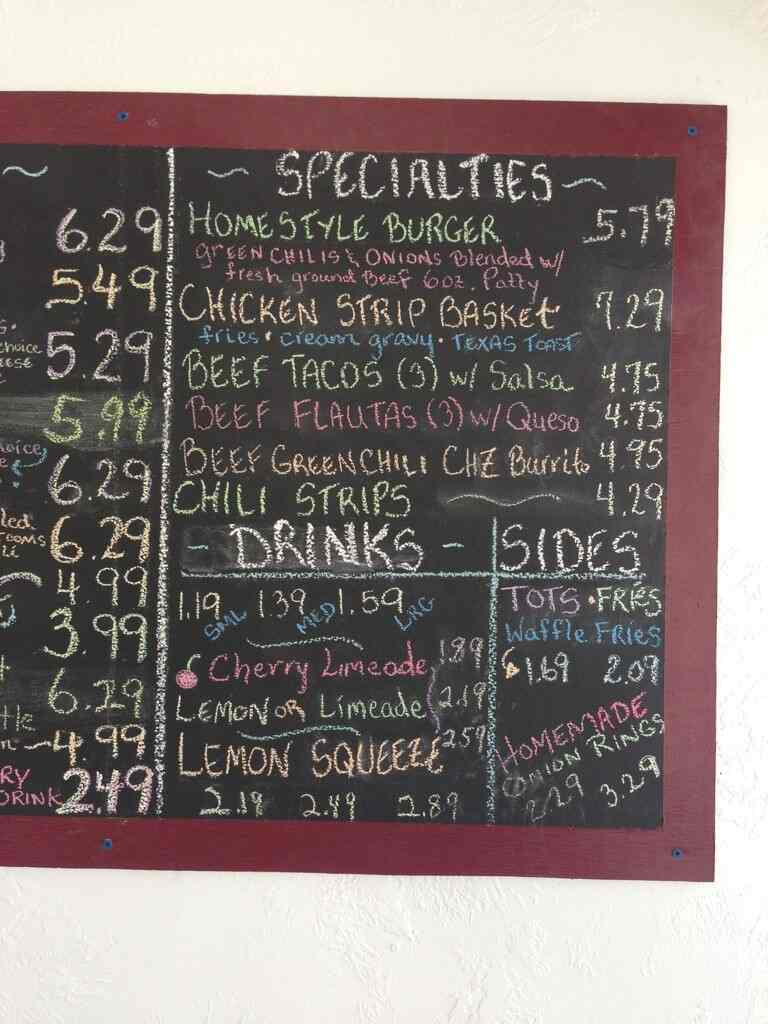 6.29
5.49
choice
5.29
5.99
6.29
6.29
4.99
3.99
6.29
4.99
DRINK 2.49
~ SPECIALTIES ~
HOMESTYLE BURGER 5.79
GREEN CHILIS & ONIONS Blended w/
fresh ground Beef 6oz. Patty
CHICKEN STRIP BASKET 7.29
fries · cream gravy · TEXAS TOAST
BEEF TACOS (3) w/ Salsa 4.75
BEEF FLAUTAS (3) w/ Queso 4.75
BEEF GREEN CHILI CHZ Burrito 4.95
CHILI STRIPS 4.29
- DRINKS -
1.19 SML 1.39 MED 1.59 LRG
Cherry Limeade 1.89
LEMON OR Limeade 2.19
2.59
LEMON SQUEEZE
2.19 2.49 2.89
SIDES
TOTS · FRIES
Waffle FRIES
1.69 2.09
HOMEMADE
ONION RINGS
2.29 3.29